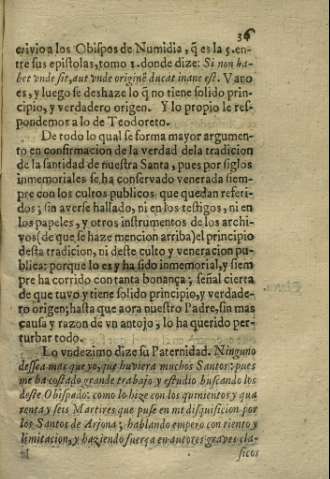 36
crivio a los Obispos de Numidia, q̃ es la 5. en-
tre sus epistolas, tomo 1. donde dize: Si non ha-
bet vnde sit, aut vnde originẽ ducat inane est. Vano
es, y luego se deshaze lo q̃ no tiene solido prin-
cipio, y verdadero origen. Y lo propio le res-
pondemos a lo de Teodoreto.
De todo lo qual se forma mayor argumen-
to en confirmacion de la verdad de la tradicion
de la santidad de nuestra Santa, pues por siglos
inmemoriales se ha conservado venerada siem-
pre con los cultos publicos que quedan referi-
dos; sin averse hallado, ni en los testigos, ni en
los papeles, y otros instrumentos de los archi-
vos (de que se haze mencion arriba) el principio
desta tradicion, ni deste culto y veneracion pu-
blica: porque lo es y ha sido inmemorial, y siem
pre ha corrido con tanta bonança; señal cierta
de que tuvo y tiene solido principio, y verdade-
ro origen; hasta que aora nuestro Padre, sin mas
causa y razon de vn antojo, lo ha querido per-
turbar todo.
Lo vndezimo dize su Paternidad. Ninguno
dessea mas que yo, que huviera muchos Santos: pues
me ha costado grande trabajo y estudio buscando los
deste Obispado: como lo hize con los quinientos y qua
renta y seis Martires que puse en mi disquisicion por
los Santos de Arjona; hablando empero con tiento y
limitacion, y haziendo fuerça en autores graves cla-
sicos